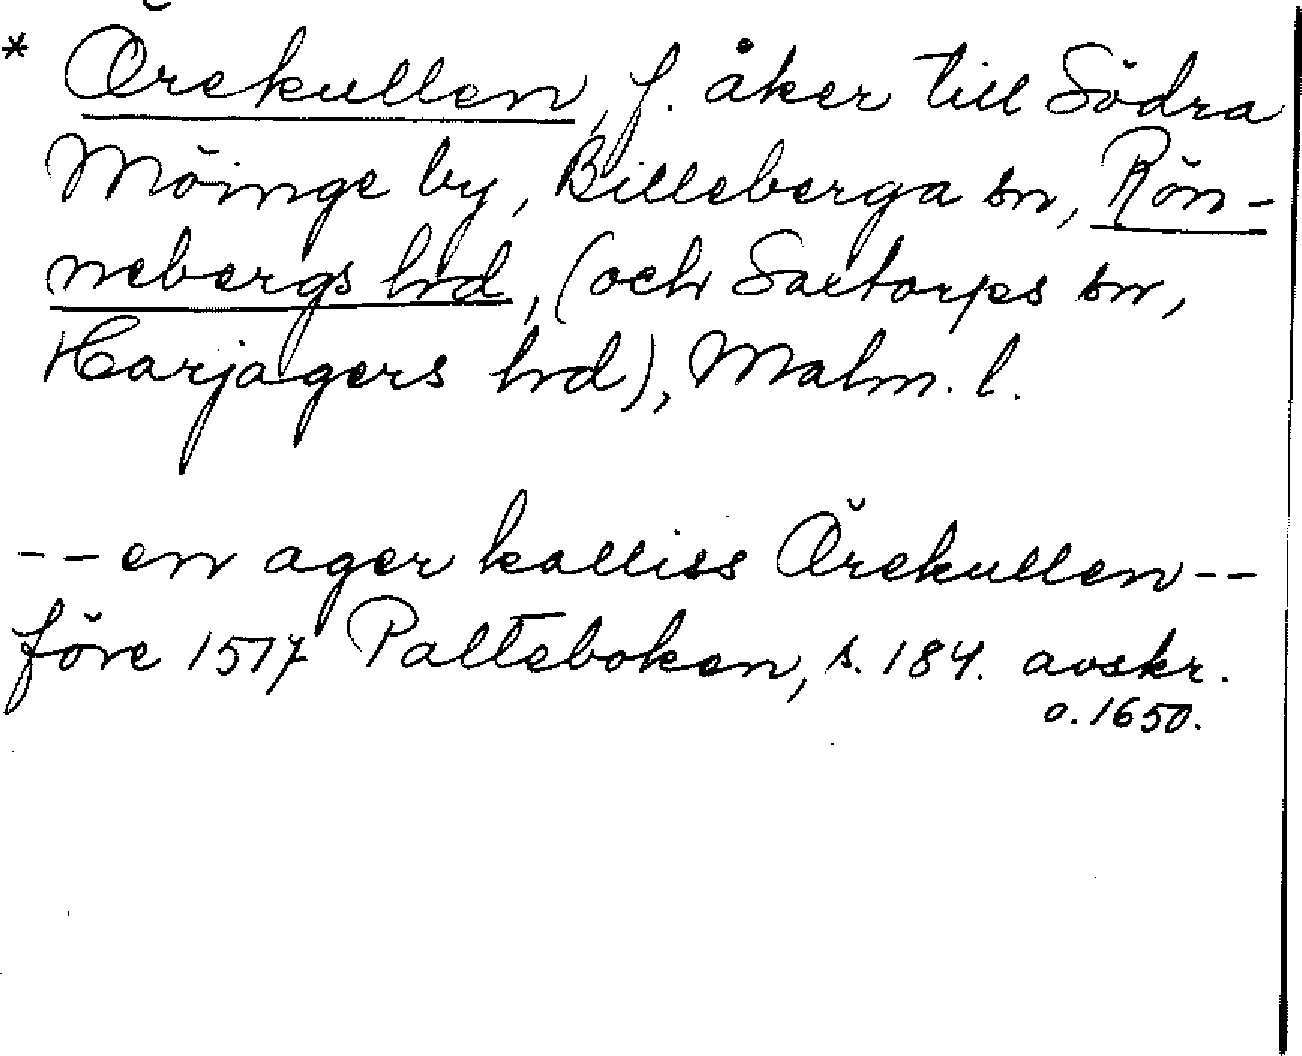 * Örekullen, f. åker till Södra
Möinge by, Billeberga sn, Rön-
nebergs hd, (och Saxtorps sn,
Harjagers hd), Malm. l.
-- en ager kalliss Örekullen --
före 1517 Palteboken, s. 184. avskr.
o. 1650.